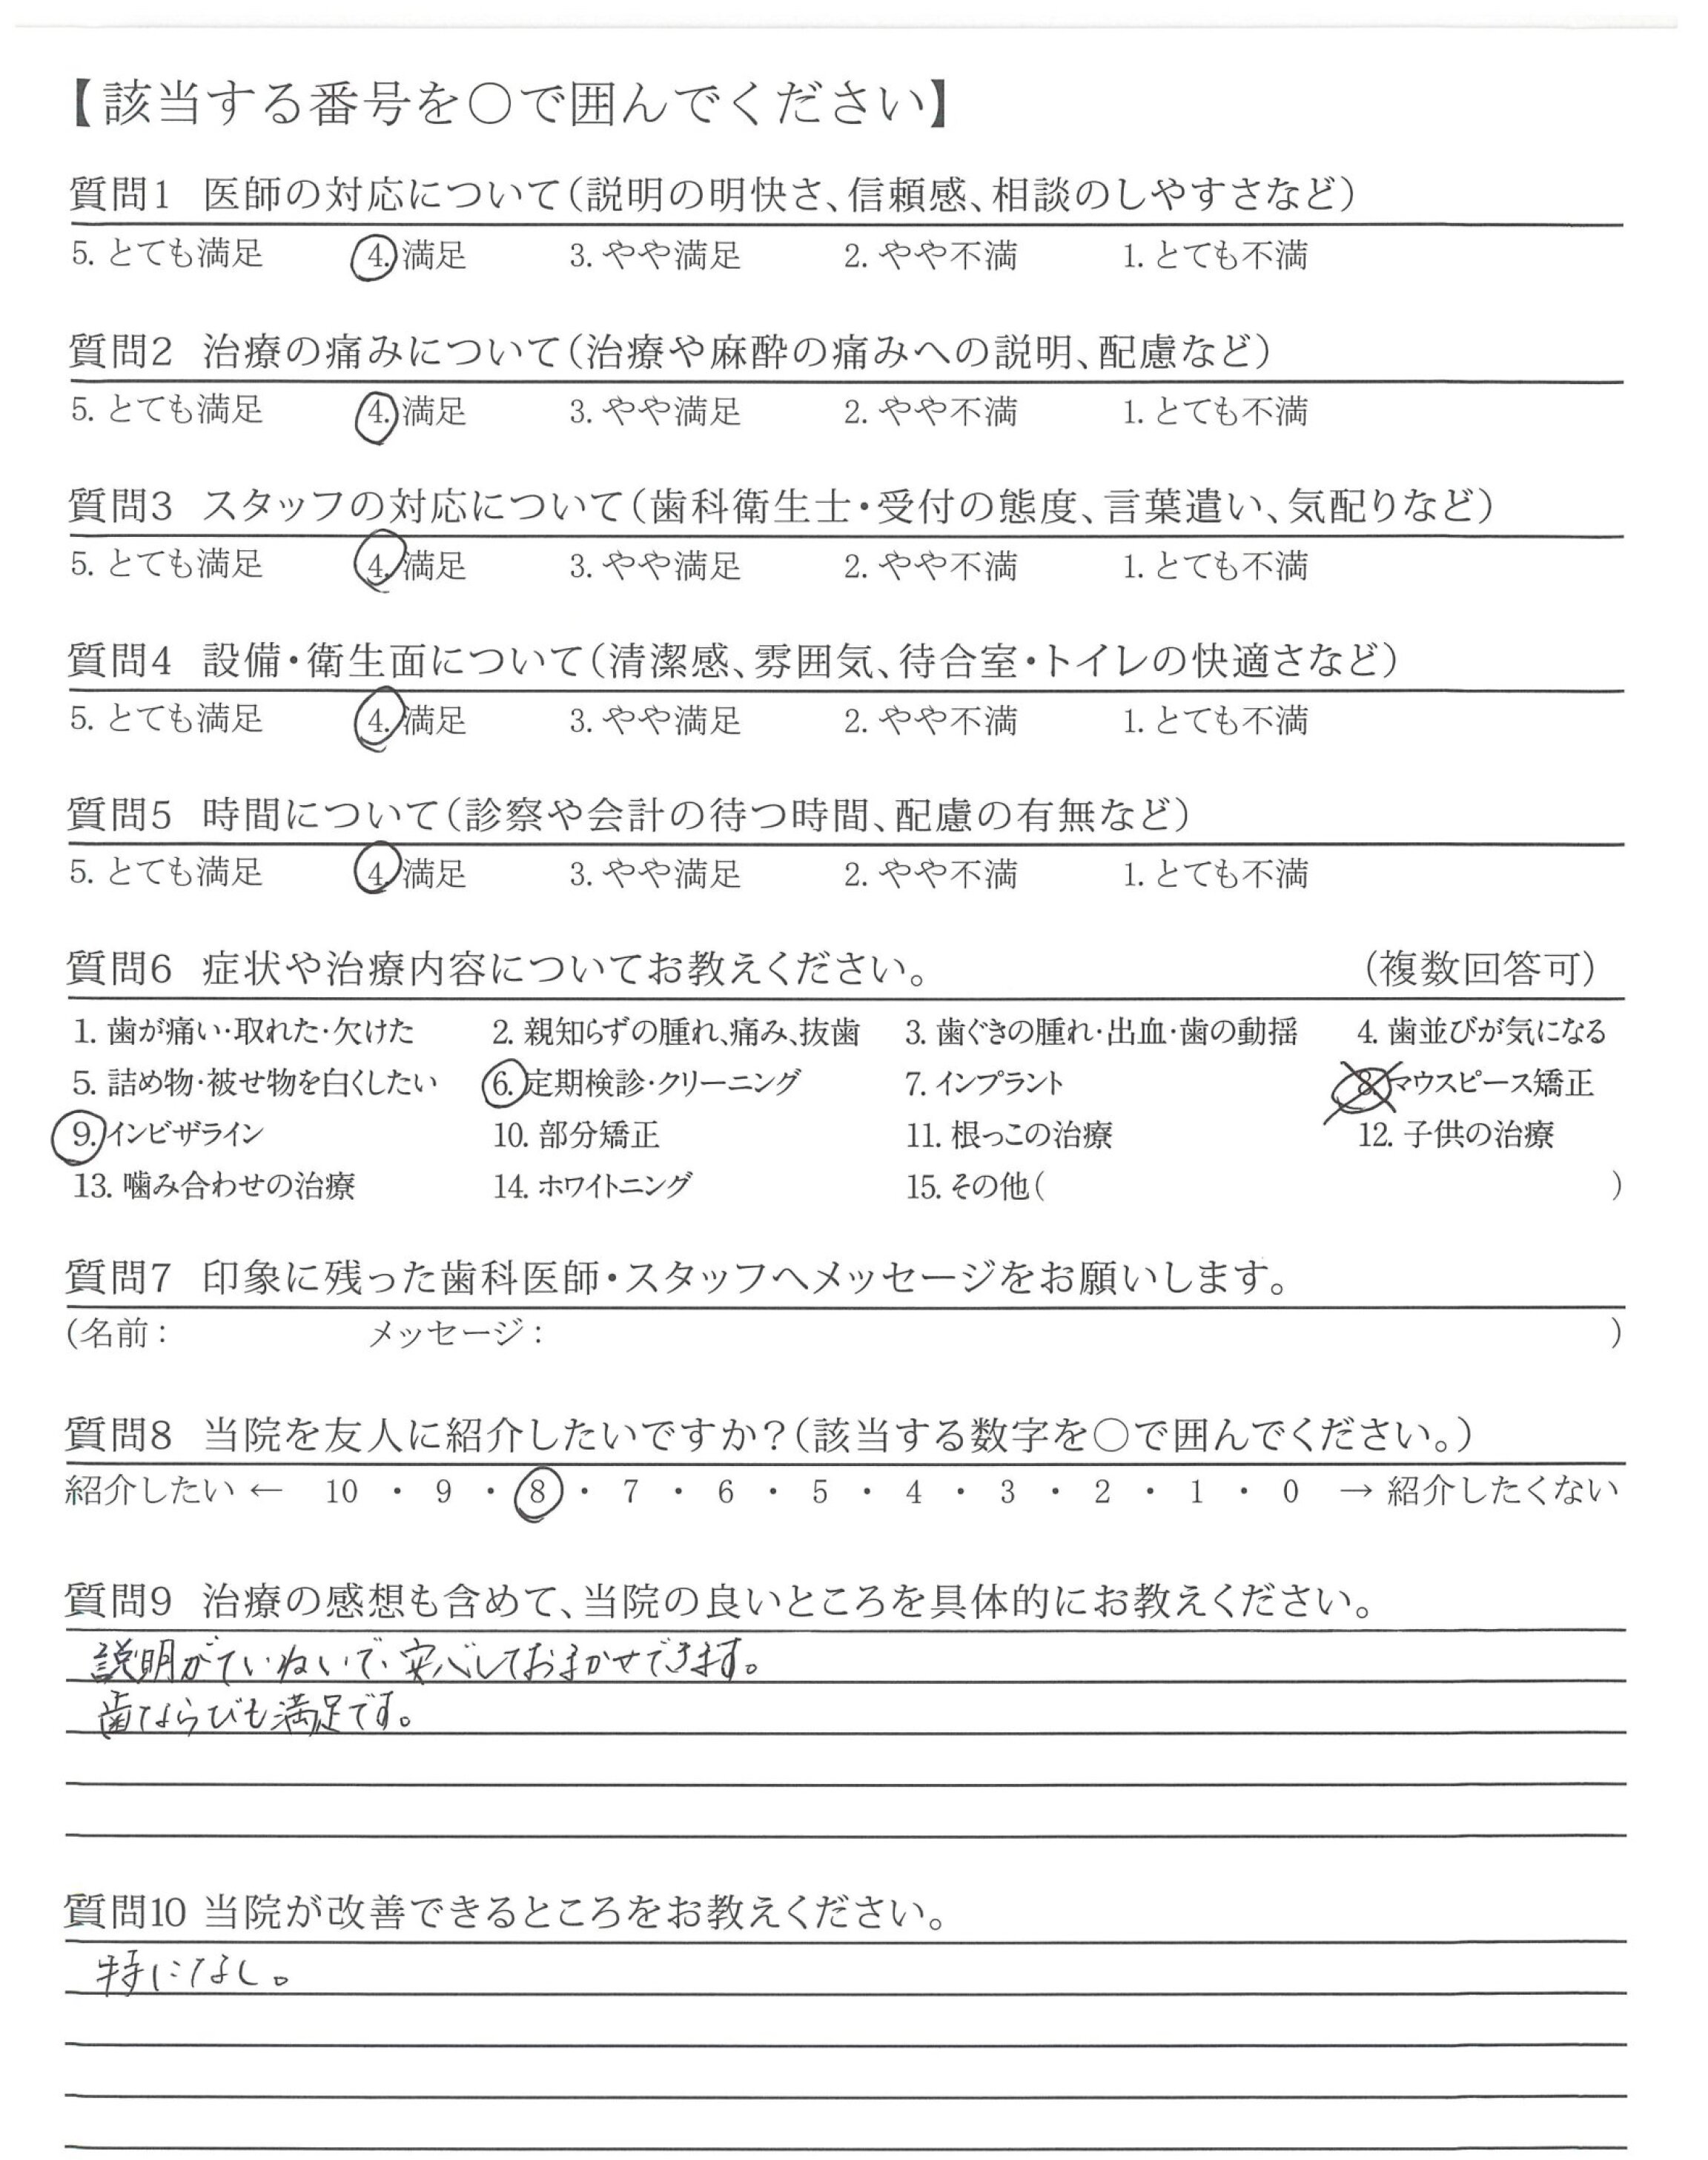 【該当する番号を○で囲んでください】
質問1 医師の対応について(説明の明快さ、信頼感、相談のしやすさなど)
5. とても満足 4. 満足 3. やや満足 2. やや不満 1. とても不満
質問2 治療の痛みについて(治療や麻酔の痛みへの説明、配慮など)
5. とても満足 4. 満足 3. やや満足 2. やや不満 1. とても不満
質問3 スタッフの対応について(歯科衛生士・受付の態度、言葉遣い、気配りなど)
5. とても満足 4. 満足 3. やや満足 2. やや不満 1. とても不満
質問4 設備・衛生面について(清潔感、雰囲気、待合室・トイレの快適さなど)
5. とても満足 4. 満足 3. やや満足 2. やや不満 1. とても不満
質問5 時間について(診察や会計の待つ時間、配慮の有無など)
5. とても満足 4. 満足 3. やや満足 2. やや不満 1. とても不満
質問6 症状や治療内容についてお教えください。 (複数回答可)
1. 歯が痛い・取れた・欠けた 2. 親知らずの腫れ、痛み、抜歯 3. 歯ぐきの腫れ・出血・歯の動揺 4. 歯並びが気になる
5. 詰め物・被せ物を白くしたい 6. 定期検診・クリーニング 7. インプラント 8. マウスピース矯正
9. インビザライン 10. 部分矯正 11. 根っこの治療 12. 子供の治療
13. 噛み合わせの治療 14. ホワイトニング 15. その他( )
質問7 印象に残った歯科医師・スタッフへメッセージをお願いします。
(名前: メッセージ: )
質問8 当院を友人に紹介したいですか?(該当する数字を○で囲んでください。)
紹介したい ← 10 ・ 9 ・ 8 ・ 7 ・ 6 ・ 5 ・ 4 ・ 3 ・ 2 ・ 1 ・ 0 → 紹介したくない
質問9 治療の感想も含めて、当院の良いところを具体的にお教えください。
説明がていねいで、安心しておまかせできます。
歯ならびも満足です。
質問10 当院が改善できるところをお教えください。
特になし。